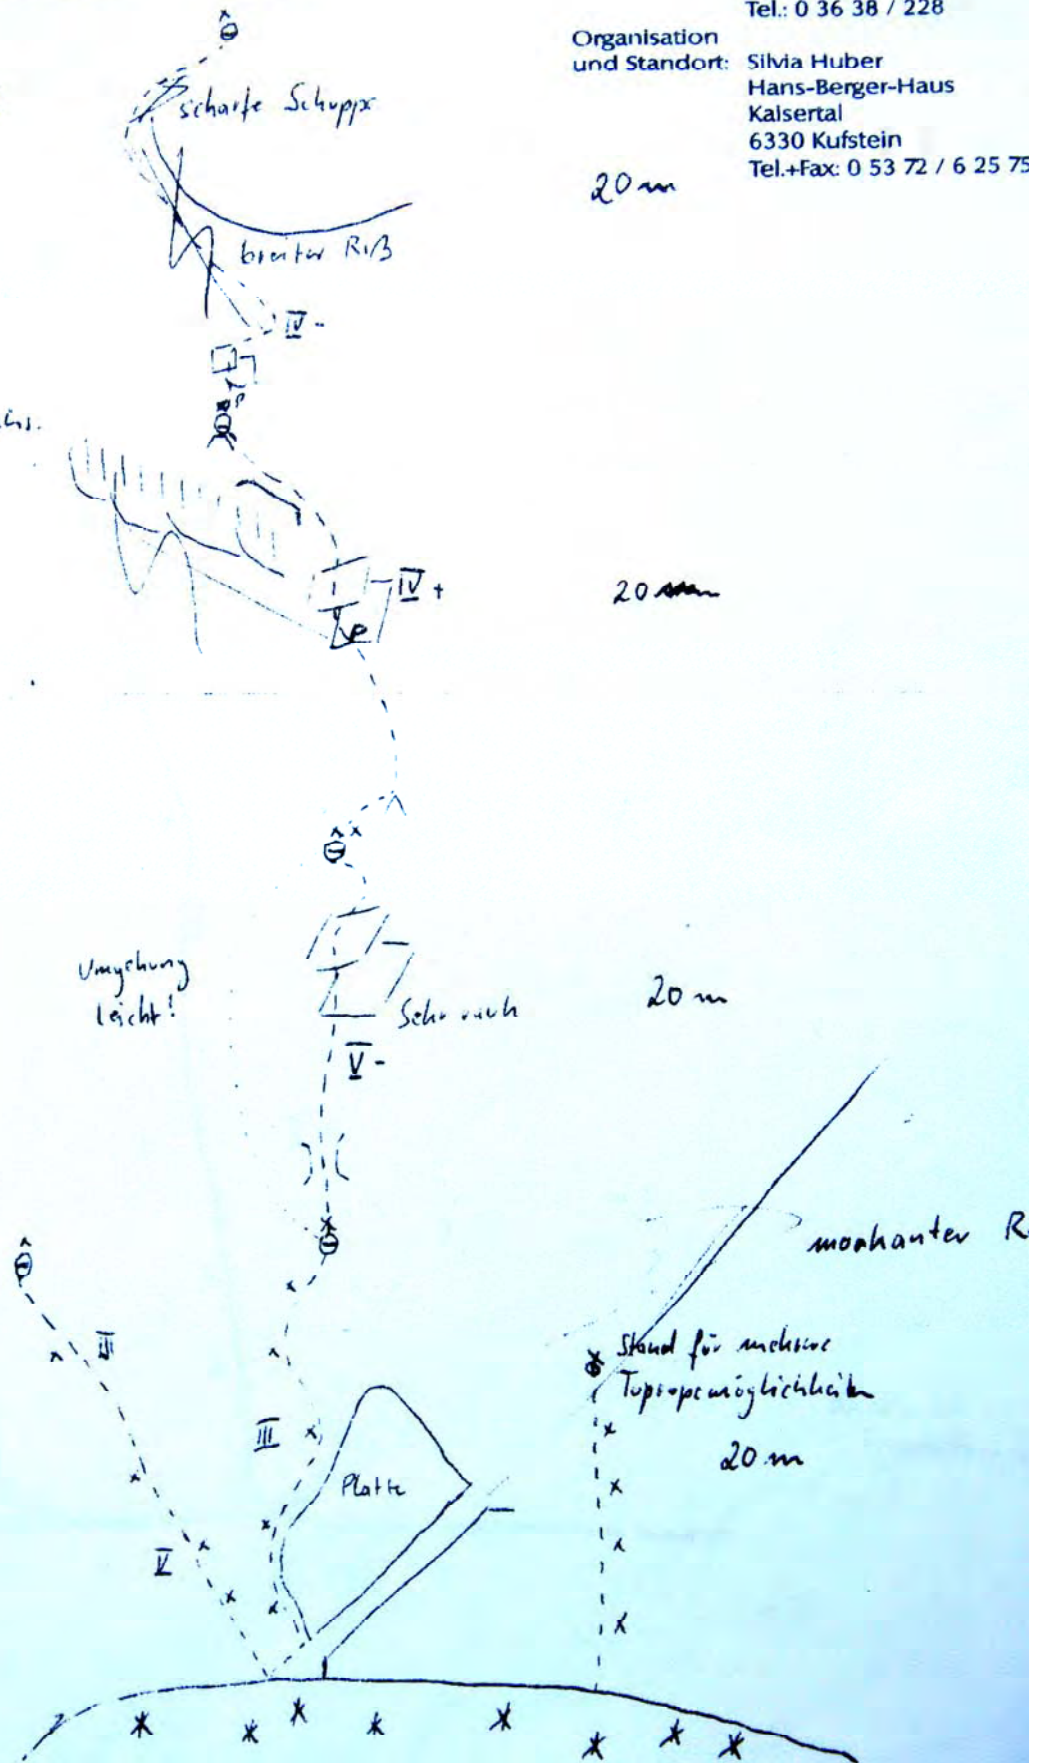 Tel.: 0 36 38 / 228
Organisation
und Standort: Silvia Huber
Hans-Berger-Haus
Kaisertal
6330 Kufstein
Tel.+Fax: 0 53 72 / 6 25 75
scharfe Schuppe
20 m
breiter Riß
IV -
IV +
20 m
Umgehung
leicht!
20 m
Sehr rauh
V -
markanter
III
Stand für mehrere
Topropemöglichkeiten
III
20 m
Platte
V